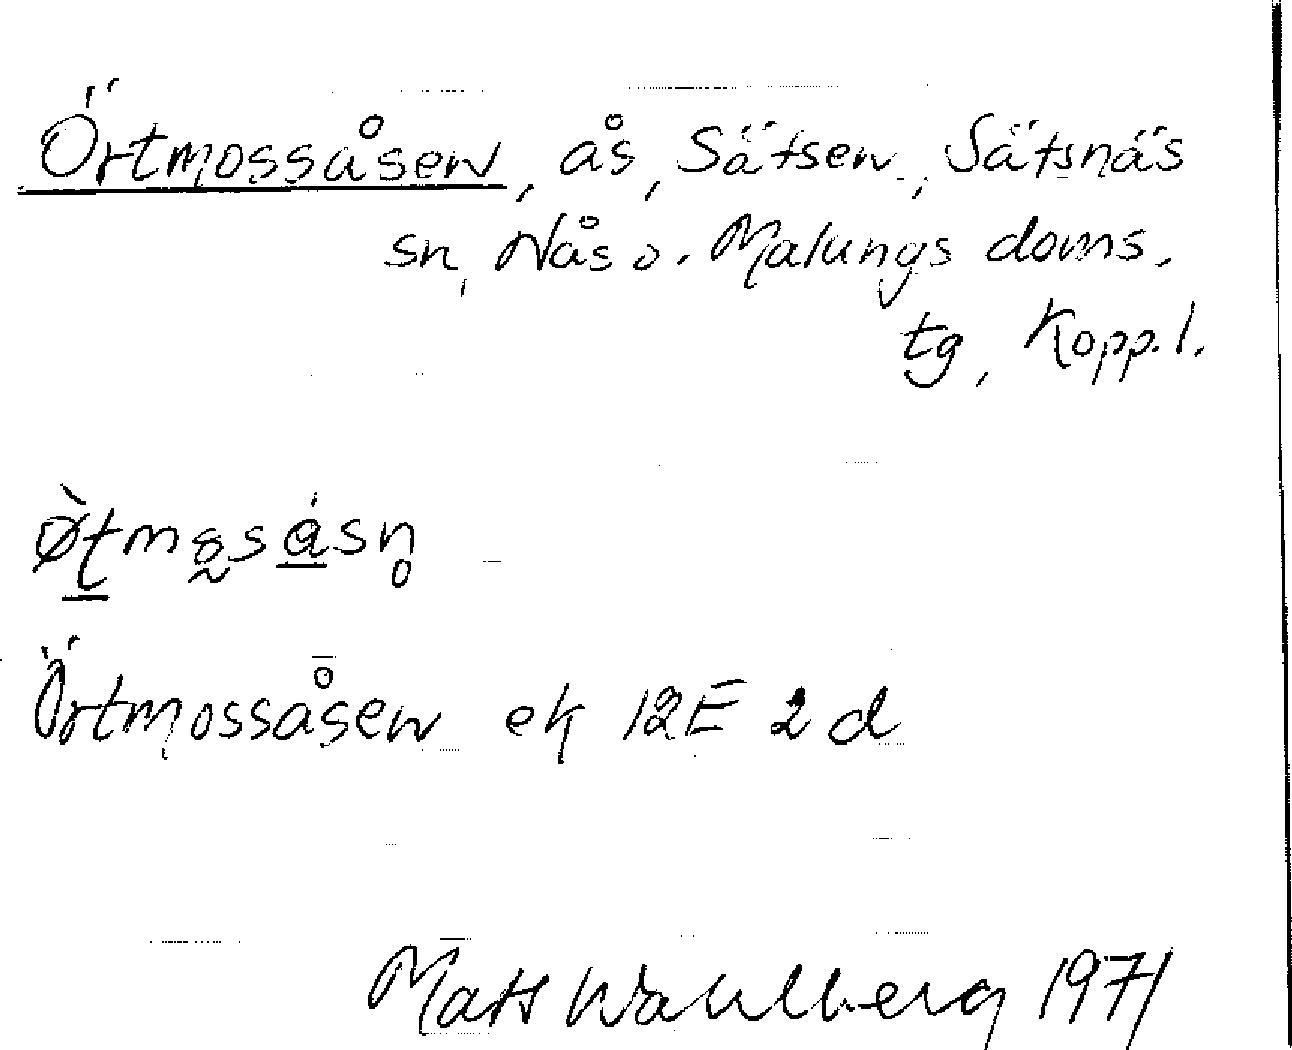 Örtmossåsen, ås, Sätsen, Sätsnäs
sn, Nås o. Malungs doms.
tg, Kopp. l.
Örtmossåsen ek 12E 2d
Mats Wahlberg 1971